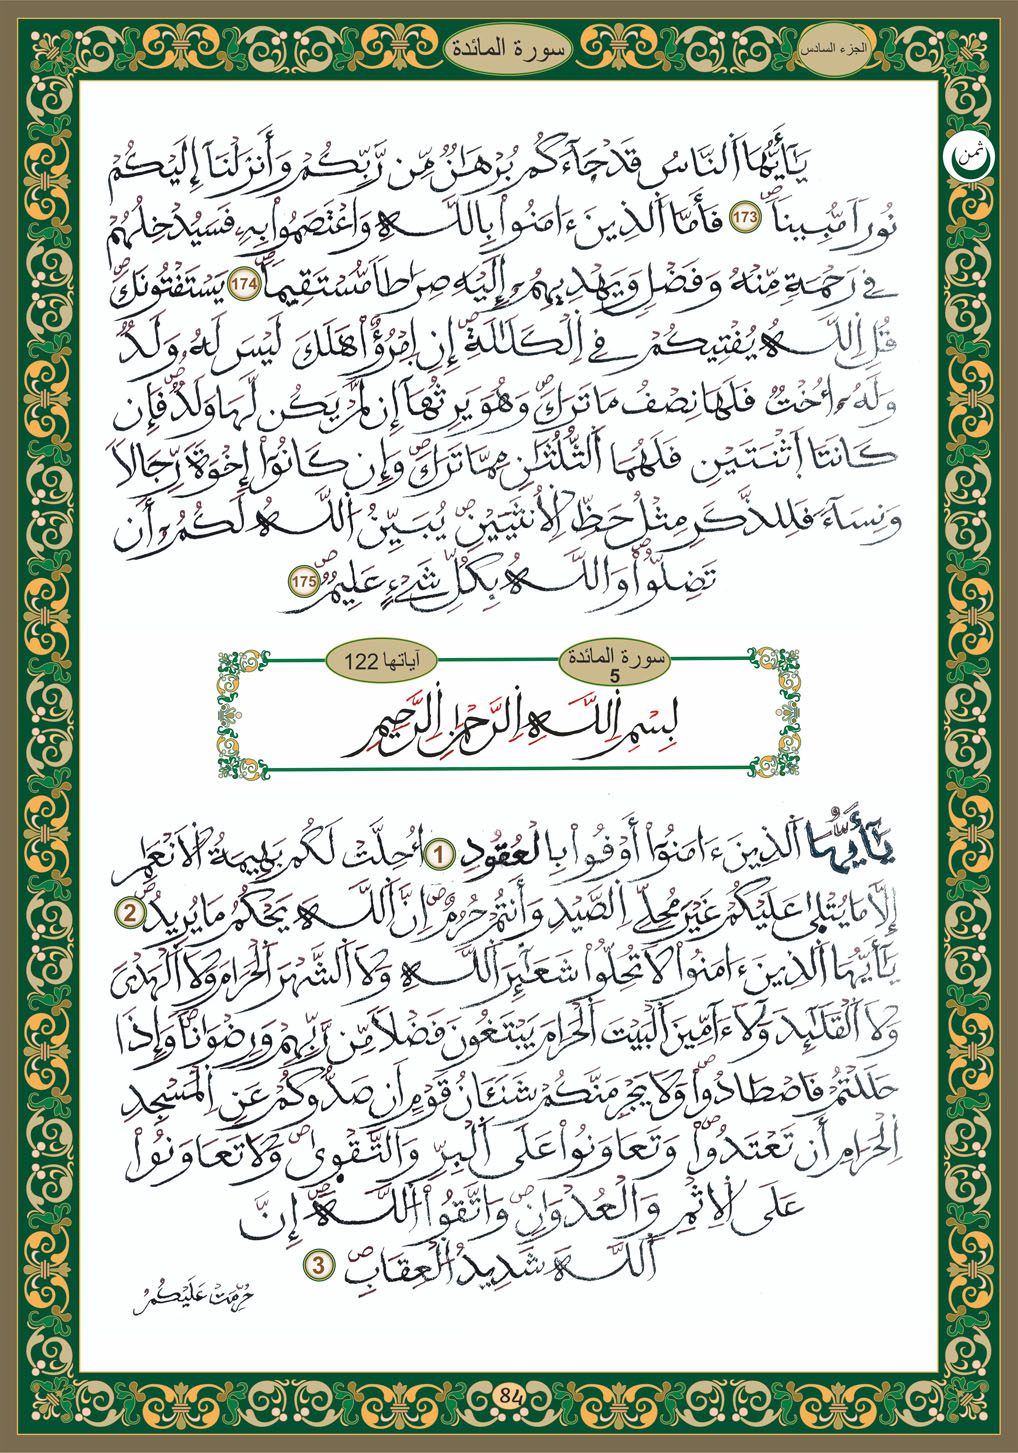 سورة المائدة
الجزء السادس
ثمن
يَٰٓأَيُّهَا اَ۬لنَّاسُ قَدْ جَآءَكُم بُرْهَٰنٌ مِّن رَّبِّكُمْ وَأَنزَلْنَآ إِلَيْكُمْ
نُوراٗ مُّبِيناٗۖ 173 فَأَمَّا اَ۬لذِينَ ءَامَنُواْ بِاللَّهِ وَاعْتَصَمُواْ بِهِۦ فَسَيُدْخِلُهُمْ
فِے رَحْمَةٖ مِّنْهُ وَفَضْلٖ وَيَهْدِيهِمُۥٓ إِلَيْهِ صِرَٰطاٗ مُّسْتَقِيماٗۖ 174 يَسْتَفْتُونَكَۖ
قُلِ اِ۬للَّهُ يُفْتِيكُمْ فِے اِ۬لْكَلَٰلَةِۖ إِنِ اِ۪مْرُؤٌاْ هَلَكَ لَيْسَ لَهُۥ وَلَدٞ
وَلَهُۥٓ أُخْتٞ فَلَهَا نِصْفُ مَا تَرَكَۖ وَهُوَ يَرِثُهَآ إِن لَّمْ يَكُن لَّهَا وَلَدٞۖ فَإِن
كَانَتَا اَ۪ثْنَتَيْنِ فَلَهُمَا اَ۬لثُّلُثَٰنِ مِمَّا تَرَكَۖ وَإِن كَانُوٓاْ إِخْوَةٗ رِّجَالاٗ
وَنِسَآءٗ فَلِلذَّكَرِ مِثْلُ حَظِّ اِ۬لُانثَيَيْنِۖ يُبَيِّنُ اُ۬للَّهُ لَكُمُۥٓ أَن
تَضِلُّواْۖ وَاللَّهُ بِكُلِّ شَےْءٍ عَلِيمٞۖ 175
سورة المائدة
5
آياتها 122
بِسْمِ اِ۬للَّهِ اِ۬لرَّحْمَٰنِ اِ۬لرَّحِيمِ
يَٰٓأَيُّهَا اَ۬لذِينَ ءَامَنُوٓاْ أَوْفُواْ بِالْعُقُودِۖ 1 أُحِلَّتْ لَكُم بَهِيمَةُ اُ۬لَانْعَٰمِ
إِلَّا مَا يُتْلَىٰ عَلَيْكُمْ غَيْرَ مُحِلِّے اِ۬لصَّيْدِ وَأَنتُمْ حُرُمٌۖ اِنَّ اَ۬للَّهَ يَحْكُمُ مَا يُرِيدُۖ 2
يَٰٓأَيُّهَا اَ۬لذِينَ ءَامَنُواْ لَا تُحِلُّواْ شَعَٰٓئِرَ اَ۬للَّهِ وَلَا اَ۬لشَّهْرَ اَ۬لْحَرَامَ وَلَا اَ۬لْهَدْيَ
وَلَا اَ۬لْقَلَٰٓئِدَ وَلَآ ءَآمِّينَ اَ۬لْبَيْتَ اَ۬لْحَرَامَ يَبْتَغُونَ فَضْلاٗ مِّن رَّبِّهِمْ وَرِضْوَٰناٗۖ وَإِذَا
حَلَلْتُمْ فَاصْطَادُواْۖ وَلَا يَجْرِمَنَّكُمْ شَنَـَٔانُ قَوْمٍ أَن صَدُّوكُمْ عَنِ اِ۬لْمَسْجِدِ
اِ۬لْحَرَامِ أَن تَعْتَدُواْۖ وَتَعَاوَنُواْ عَلَى اَ۬لْبِرِّ وَالتَّقْوَىٰۖ وَلَا تَعَاوَنُواْ
عَلَى اَ۬لِاثْمِ وَالْعُدْوَٰنِۖ وَاتَّقُواْ اُ۬للَّهَۖ إِنَّ
اَ۬للَّهَ شَدِيدُ اُ۬لْعِقَابِۖ 3
حُرِّمَتْ عَلَيْكُمُ
84